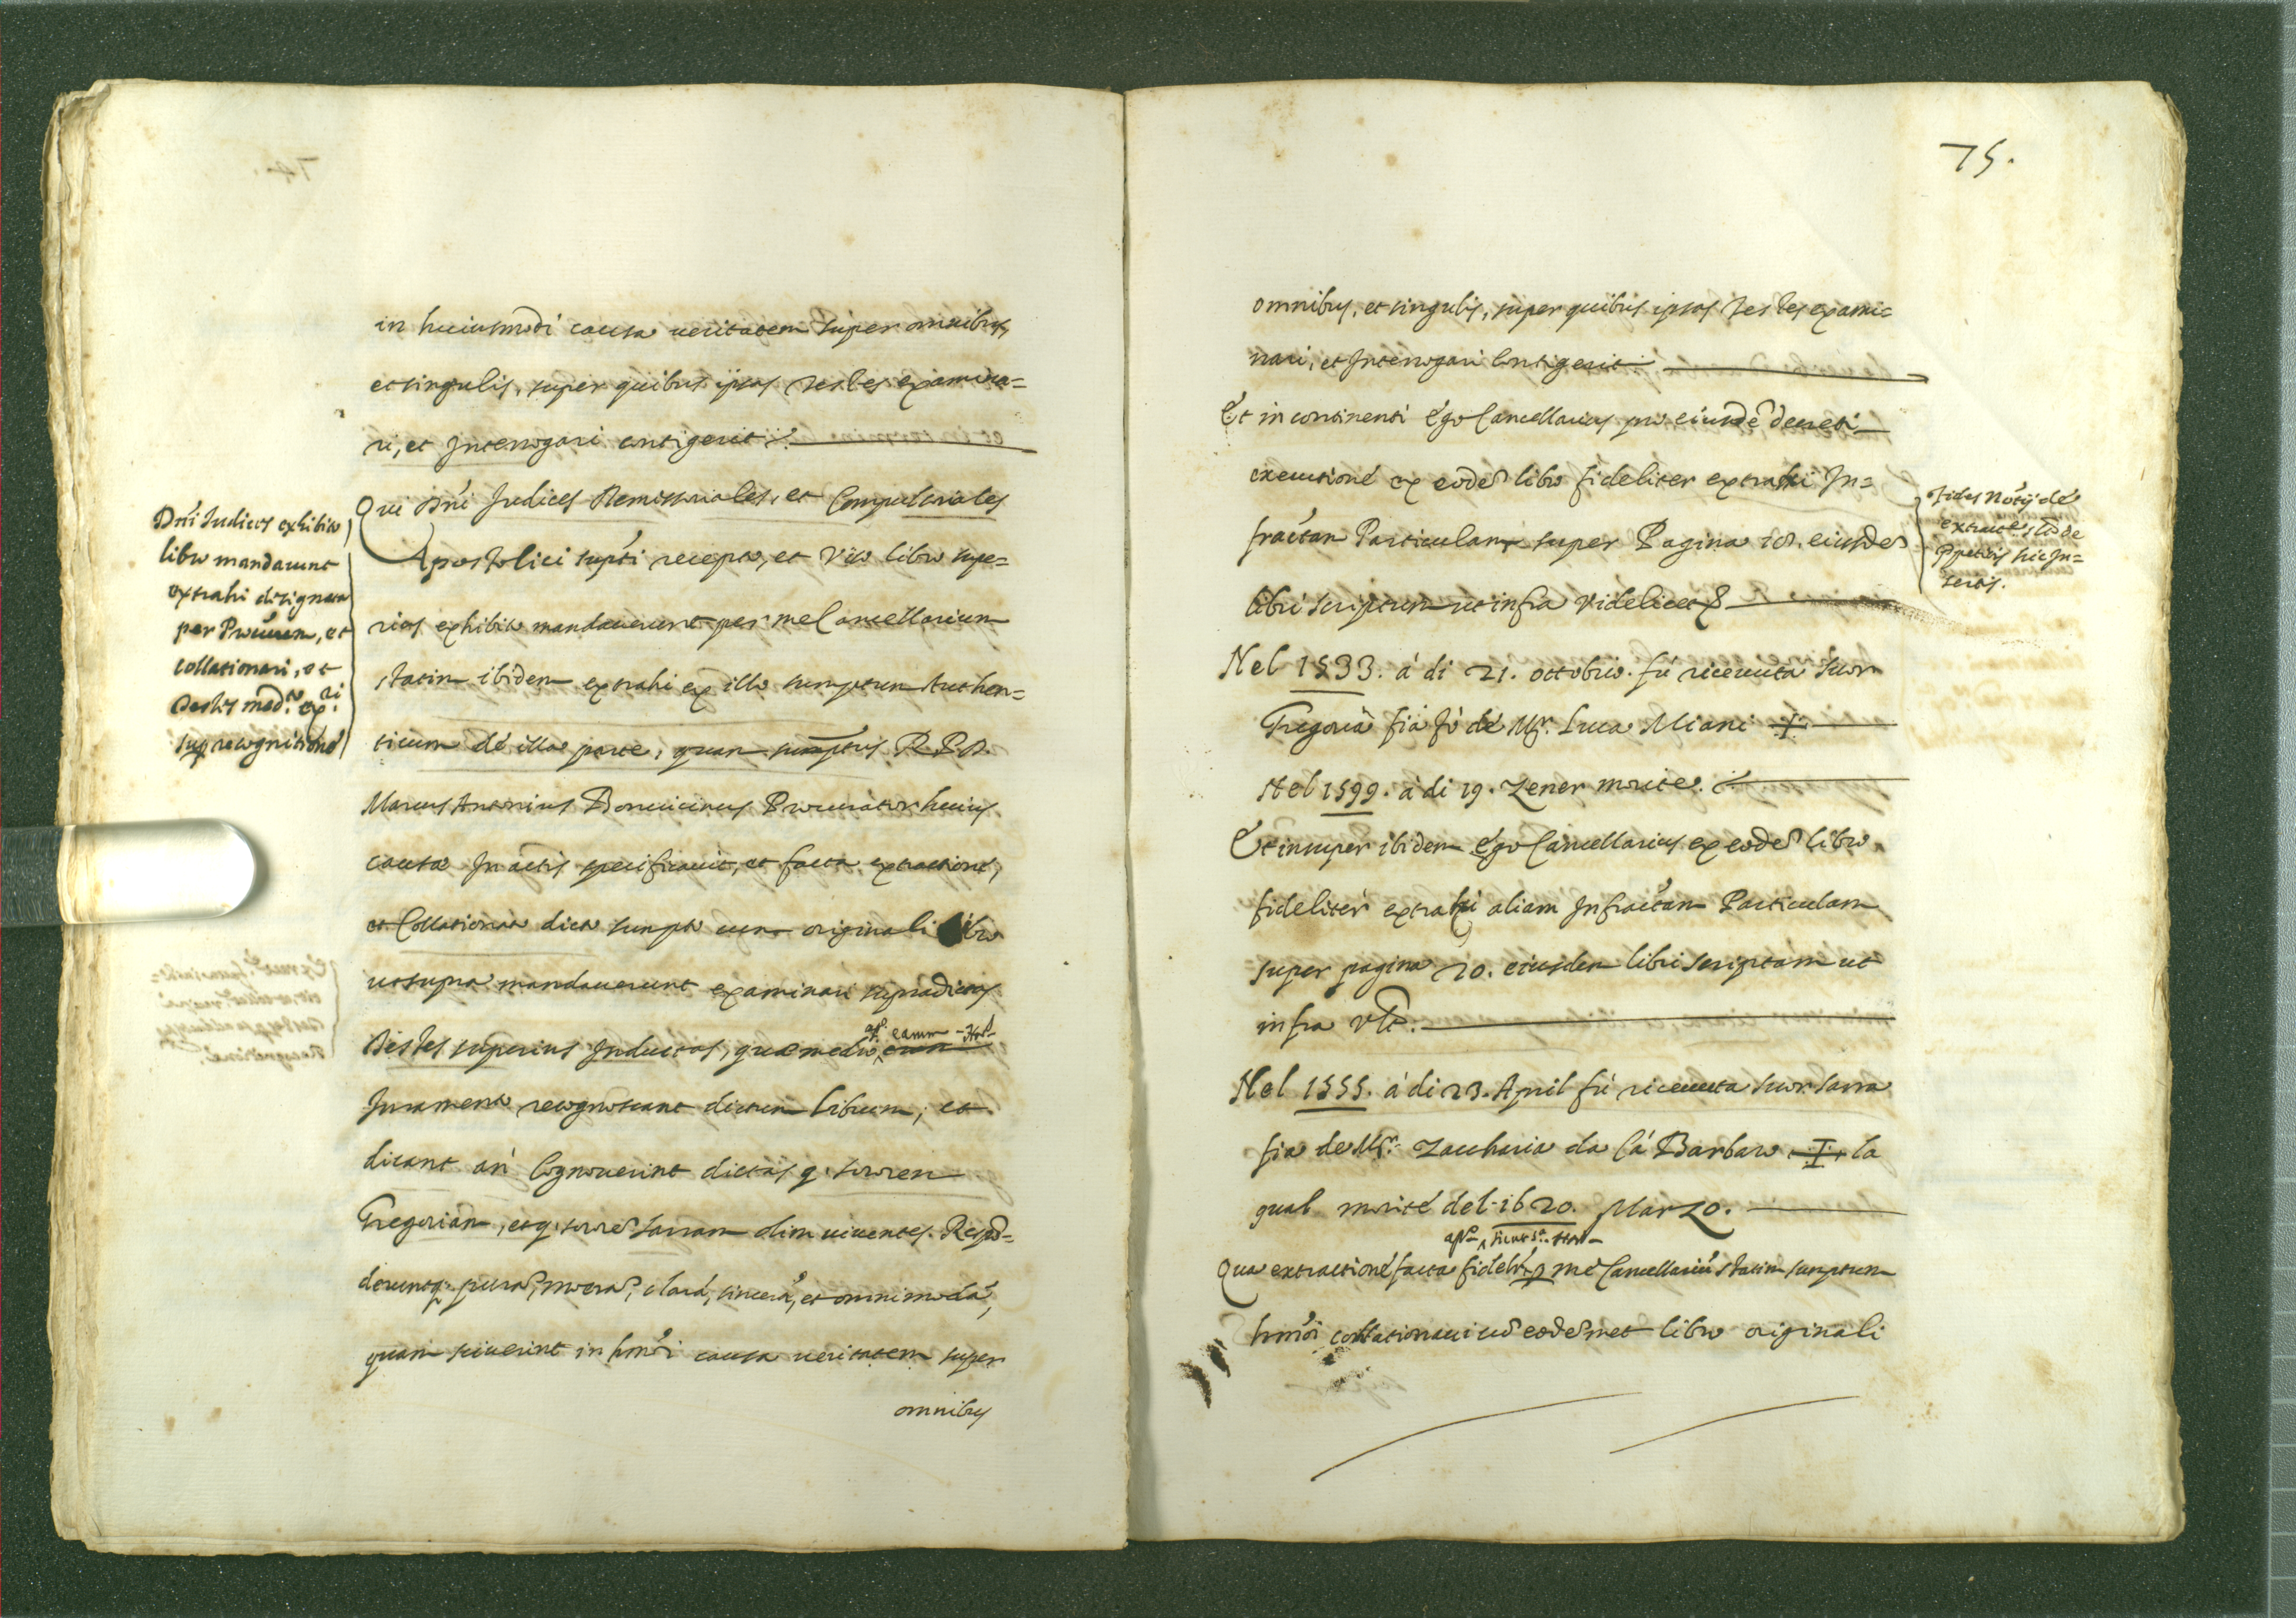 in huiusmodi causa veritatem super omnibus,
et singulis, super quibus ipsos testes examina=
ri, et Interrogari contigerit
Dn̄i Iudices exhibito
libro mandarunt
extrahi designata
per Procurem, et
collationari, et
testes mad.º ex.ri
sup recognitione
Qui Dn̄i Iudices Remissoriales, et Compulsoriales
Apostolici supti recepto, et Viso libro supe=
rius exhibito mandaverunt per me Cancellarium
statim ibidem extrahi ex illo sumptum Authen=
ticum de illa parte, quam R. P. D.
Marcus Antonius Bonuicinus Procurator huius
causa In actis specificavit, et facta extractione,
et Collationata dicto sumpto cum originali libro
ut supra mandaverunt examinari supradictos
Testes superius Inductos, qui medio eorum
Iuramento recognoscant dictum librum, et
dicant an Cognouerint dictas q. sororem
Gregoriam, et q. sorore Sarram olim viventes. Respō=
derintq. pura, mera, clara, sincera, et omnimoda,
quam sciverint in hmōi causa veritatem super
omnibus
75.
omnibus, et singulis, super quibus ipsos testes exami=
nari, et Interrogari Contigerit
Et in continenti Ego Cancellarius pro eiusdē decreti
executione ex eodē libro fideliter extrahi In=
fractam Particulam super Pagina 18. eiusdē
libri scriptum ut infra Videlicet
Fides Notrij de
extractis
hic In=
sertis.
Nel 1533. à di 21. ottobrio. fù riceuuta Suor
Gregoria fia fò de Mr. Luca Miani +
Nel 1599. à di 19. Zener morite.
Et insuper ibidem Ego Cancellarius ex eodē libro
fideliter extrahi aliam Infractam Particulam
super pagina 20. eiusdem libri scriptam ut
infra Vlt.
Nel 1555. à di 23. April fù riceuuta suor Sarra
fia de Mr. Zaccharia da Cà Barbaro + la
qual morite del 1620. Marzo.
Qua extractione facta fidelr. p me Cancellariū statim sumptum
hmōi collationaui cū eodēmet libro originali